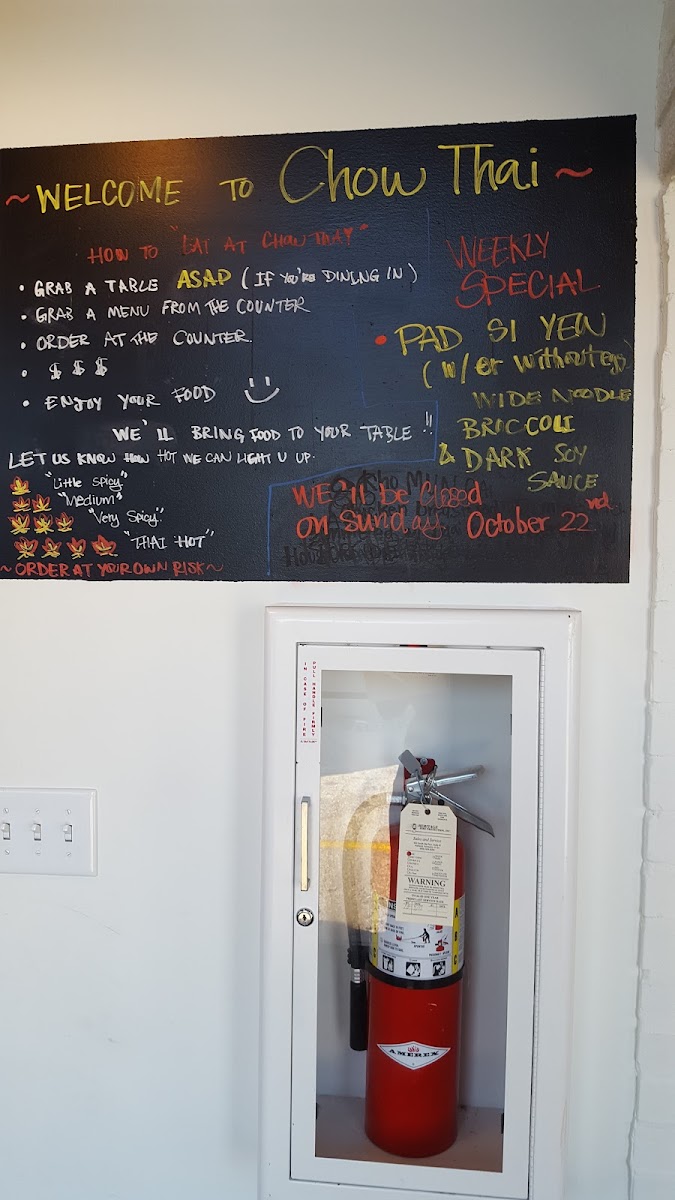 ~ WELCOME TO Chow Thai ~
HOW TO "EAT AT CHOW THAI"
• GRAB A TABLE ASAP (IF YOU'RE DINING IN)
• GRAB A MENU FROM THE COUNTER
• ORDER AT THE COUNTER.
• $ $ $
• ENJOY YOUR FOOD
WE'LL BRING FOOD TO YOUR TABLE !!
LET US KNOW HOW HOT WE CAN LIGHT U UP.
"Little Spicy"
"Medium"
"Very Spicy"
"THAI HOT"
~ ORDER AT YOUR OWN RISK ~
WEEKLY
SPECIAL
• PAD SI YEW
(w/ or without eggs)
WIDE NOODLE
BROCCOLI
& DARK SOY
SAUCE
WE'll be Closed
on Sunday October 22nd
IN CASE OF FIRE
PULL HANDLE FIRMLY
WARNING
A
B
C
AMEREX